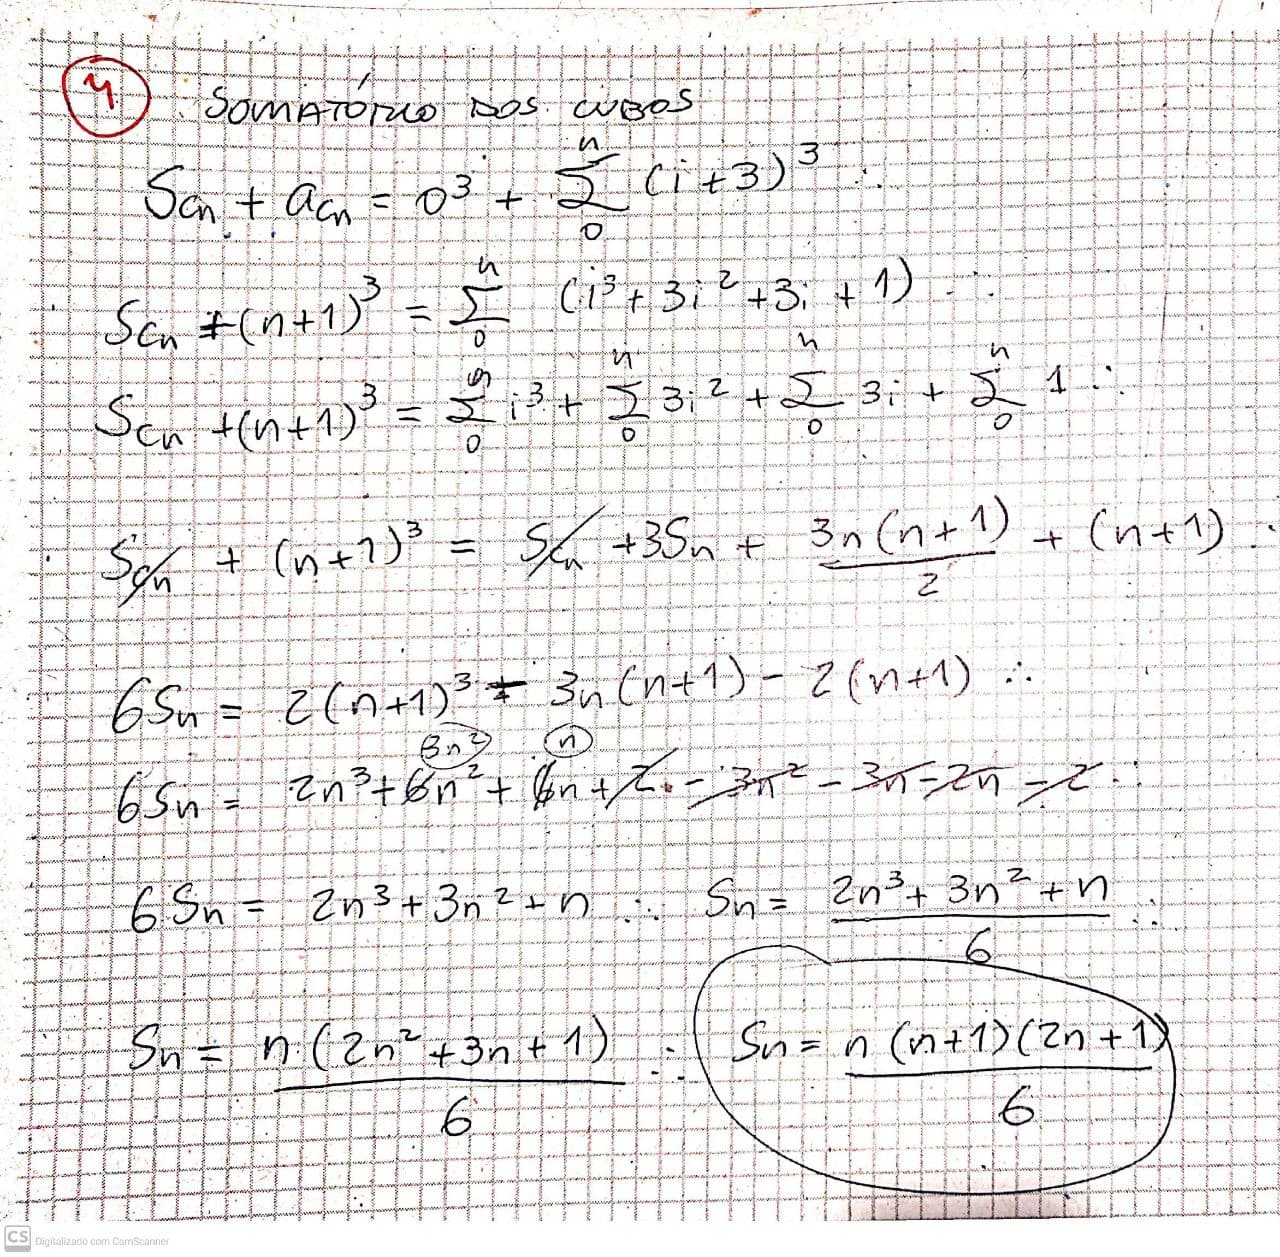 4 SOMATÓRIO DOS CUBOS
Scn + acn = 0³ + n Σ 0 (i+3)³ ∴
Scn + (n+1)³ = n Σ 0 (i³ + 3i² + 3i + 1) ∴
Scn + (n+1)³ = n Σ 0 i³ + n Σ 0 3i² + n Σ 0 3i + n Σ 0 1 ∴
∴ Scn + (n+1)³ = Scn + 3Sn + 3n(n+1)/2 + (n+1) ∴
6Sn = 2(n+1)³ - 3n(n+1) - 2(n+1) ∴
3n² n
6Sn = 2n³ + 6n² + 6n + 2 - 3n² - 3n - 2n - 2 ∴
6Sn = 2n³ + 3n² + n ∴ Sn = 2n³ + 3n² + n / 6 ∴
Sn = n(2n² + 3n + 1) / 6 ∴ Sn = n(n+1)(2n+1) / 6
CS Digitalizado com CamScanner